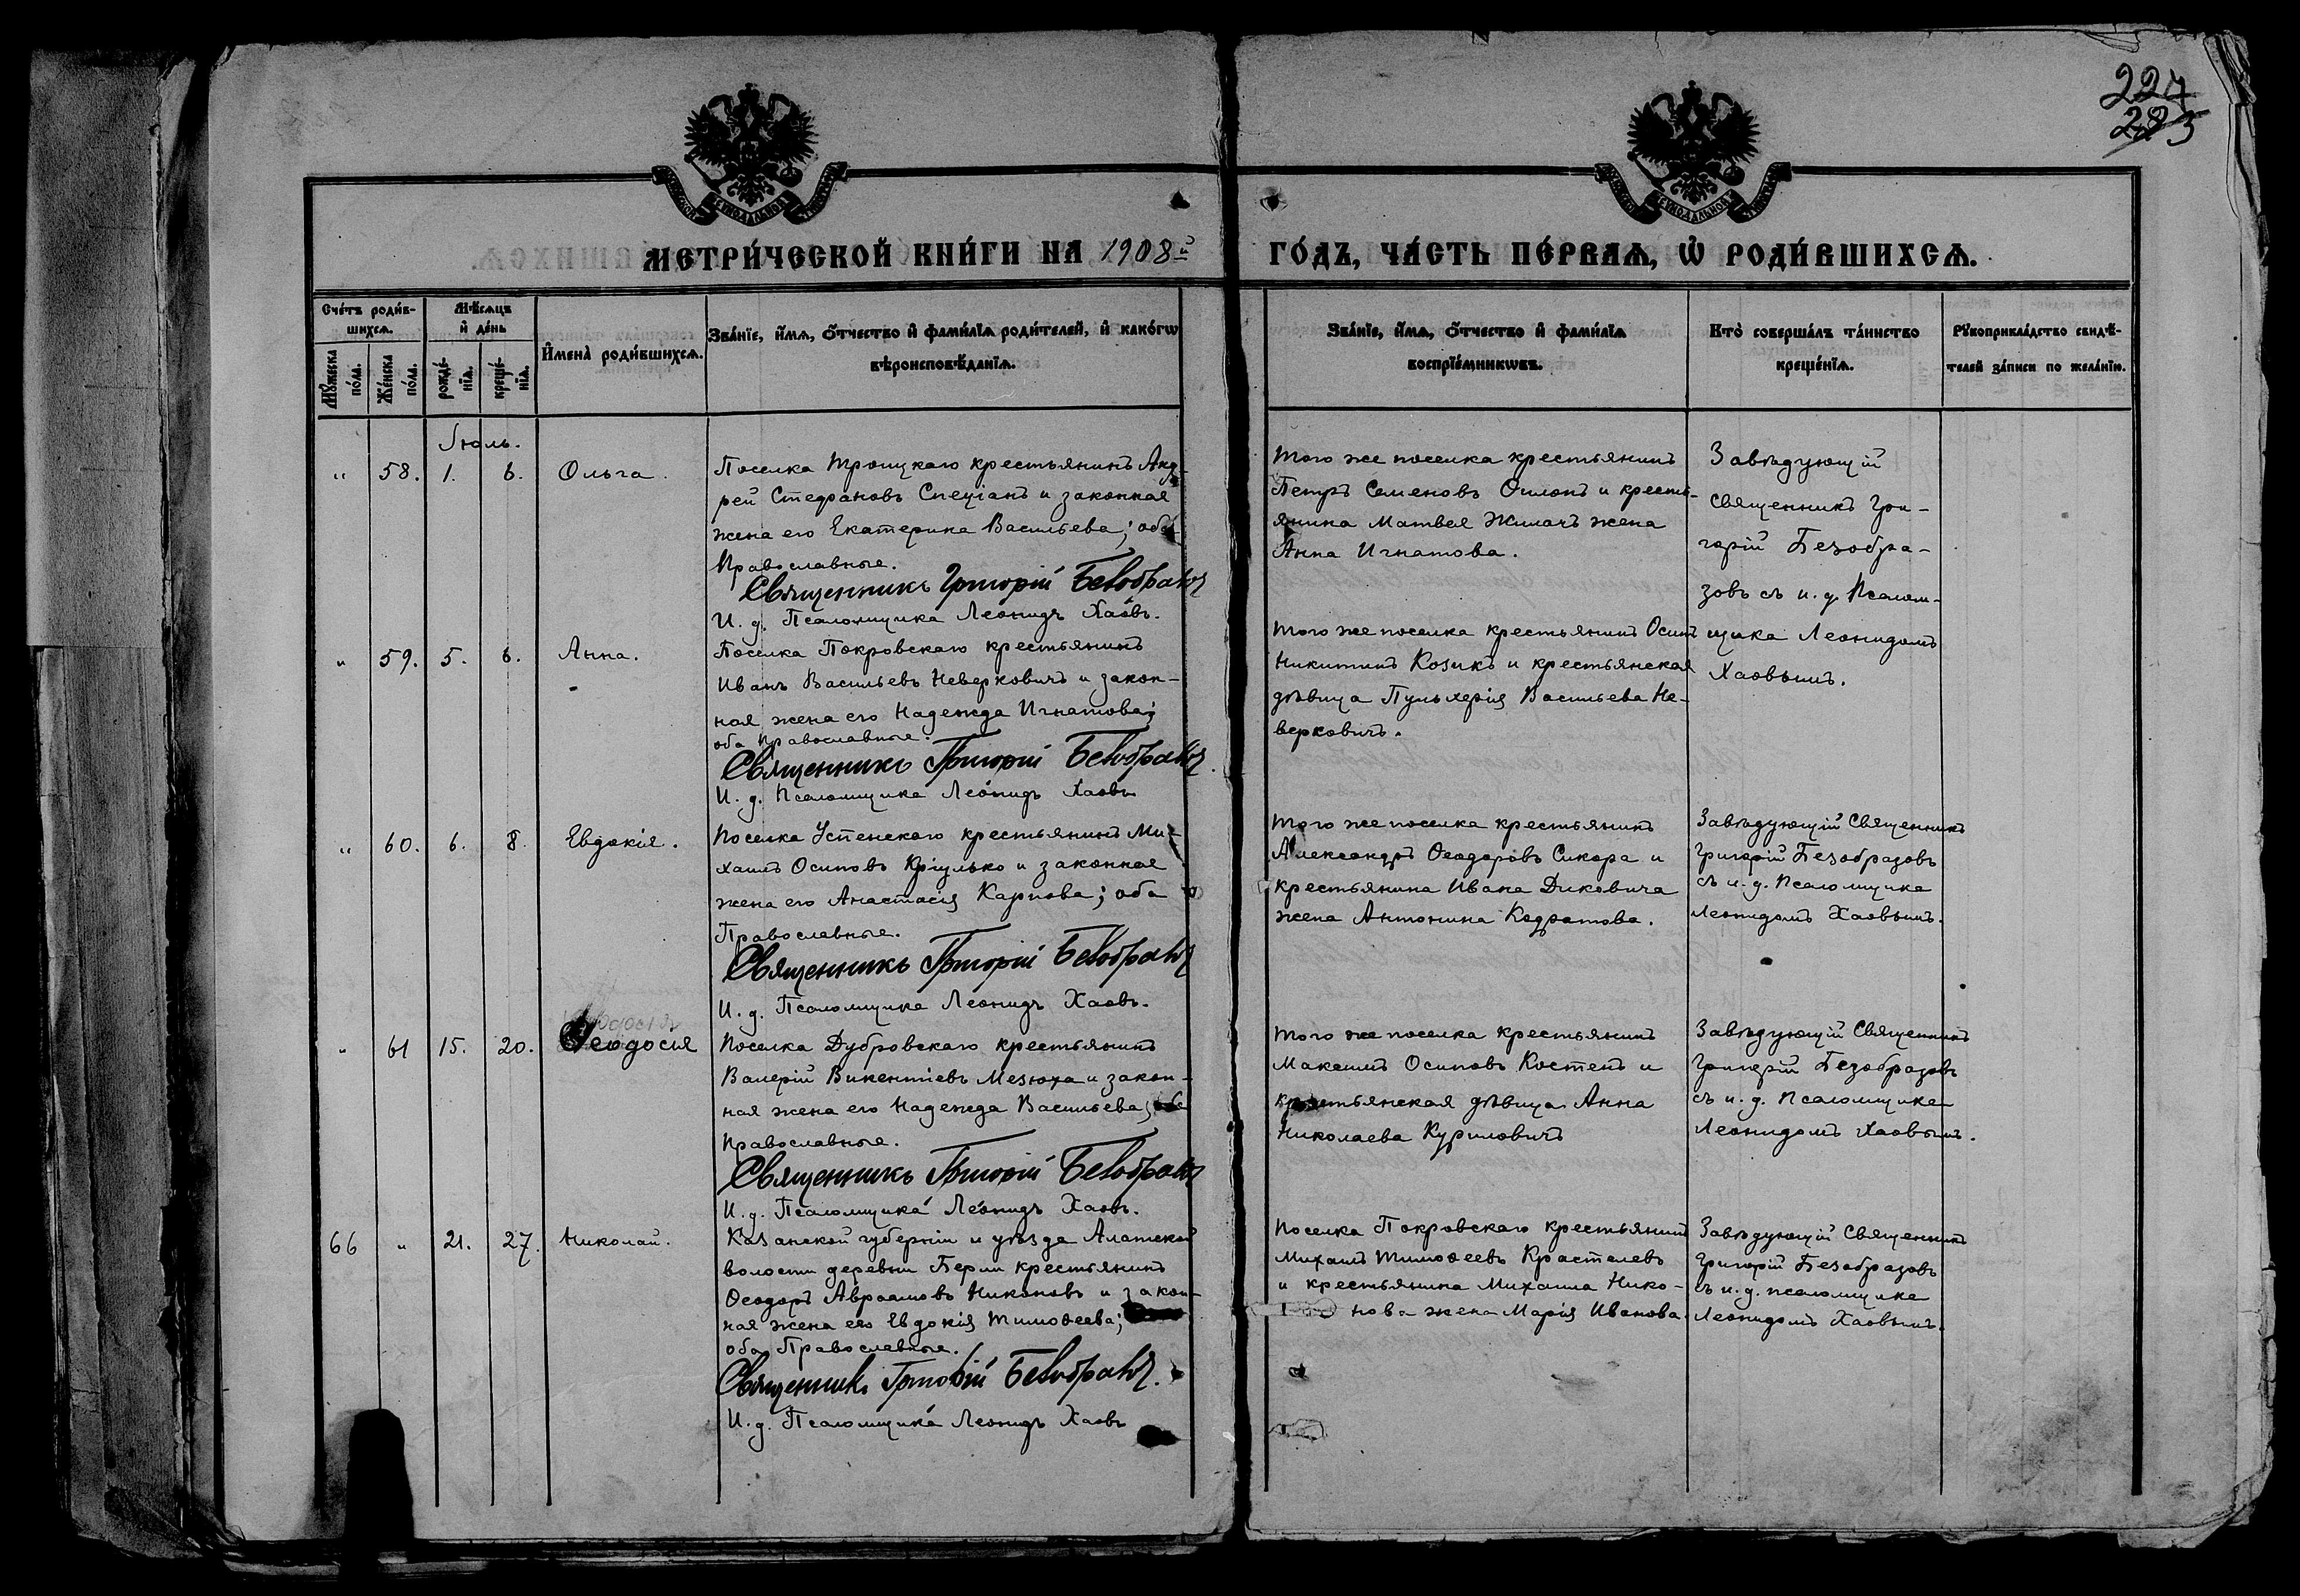 224
283
МЕТРИ́ЧЕСКОЙ КНИ́ГИ НА 1908й
ГО́ДЪ, ЧА́СТЬ ПЕ́РВАѦ, Ѡ РОДИ́ВШИХСѦ.
Сче́тъ роди́в-
шихсѧ.
Мѣ́сѧцъ
и де́нь
Мꙋ́жеска
по́ла.
Же́нска
по́ла.
рожде́-
нїѧ.
креще́-
нїѧ.
Имена̀ роди́вшихсѧ.
Зва́нїе, и́мѧ, ѻ́тчество и фами́лїѧ роди́телей, и како́гѡ
вѣроисповѣ́данїѧ.
Зва́нїе, и́мѧ, ѻ́тчество и фами́лїѧ
воспрїе́мникѡвъ.
Кто̀ соверша́лъ та́инство
креще́нїѧ.
Рꙋкоприкла́дство свидѣ́-
телей за́писи по жела́нїю.
Іюль.
" 58. 1. 6. Ольга.
Поселка Троицкаго крестьянинъ Анд-
рей Стефановъ Спеціанъ и законная
жена его Екатерина Васильева; оба
Православные.
Священникъ Григорій Безобразовъ
И. д. Псаломщика Леонидъ Хаовъ.
Того же поселка крестьянинъ
Петръ Семеновъ и кресть-
янина Матвея Жилачъ жена
Анна Игнатова.
Завѣдующій
священникъ Гри-
горій Безобра-
зовъ съ и. д. Псалом-
щика Леонидомъ
Хаовымъ.
" 59. 5. 6. Анна.
Поселка Покровскаго крестьянинъ
Иванъ Васильевъ Неверковичъ и закон-
ная жена его Надежда Игнатова;
оба Православные.
Священникъ Григорій Безобразовъ
И. д. Псаломщика Леонидъ Хаовъ
Того же поселка крестьянинъ Осипъ
Никитинъ Козикъ и крестьянская
дѣвица Пульхерія Васильева Не-
верковичъ.
" 60. 6. 8. Евдокія.
Поселка Успенскаго крестьянинъ Ми-
хаилъ Осиповъ Кріулько и законная
жена его Анастасія Карпова; оба
Православные.
Священникъ Григорій Безобразовъ
И. д. Псаломщика Леонидъ Хаовъ.
Того же поселка крестьянинъ
Александръ Ѳеодоровъ Сикора и
крестьянина Ивана Диковича
жена Антонина Кодратова.
Завѣдующій Священникъ
Григорій Безобразовъ
съ и. д. Псаломщика
Леонидомъ Хаовымъ.
" 61 15. 20. Ѳеодосія
Поселка Дубровскаго крестьянинъ
Валерій Викентіевъ Мезюха и закон-
ная жена его Надежда Васильева; оба
Православные.
Священникъ Григорій Безобразовъ
И. д. Псаломщика Леонидъ Хаовъ.
Того же поселка крестьянинъ
Максимъ Осиповъ Костенъ и
крестьянская дѣвица Анна
Николаева Куриловичъ
Завѣдующій Священникъ
Григорій Безобразовъ
съ и. д. Псаломщика
Леонидомъ Хаовымъ.
66 " 21. 27. Николай.
Казанской губерніи и уѣзда Алатской
волости деревни Берли крестьянинъ
Ѳеодоръ Авраамовъ Никоновъ и закон-
ная жена его Евдокія Тимоѳеева;
оба Православные.
Священникъ Григорій Безобразовъ.
И. д. Псаломщика Леонидъ Хаовъ
Поселка Покровскаго крестьянинъ
Михаилъ Тимоѳеевъ Красталевъ
и крестьянина Михаила Нико-
нова жена Марія Иванова.
Завѣдующій Священникъ
Григорій Безобразовъ
съ и. д. псаломщика
Леонидомъ Хаовымъ.